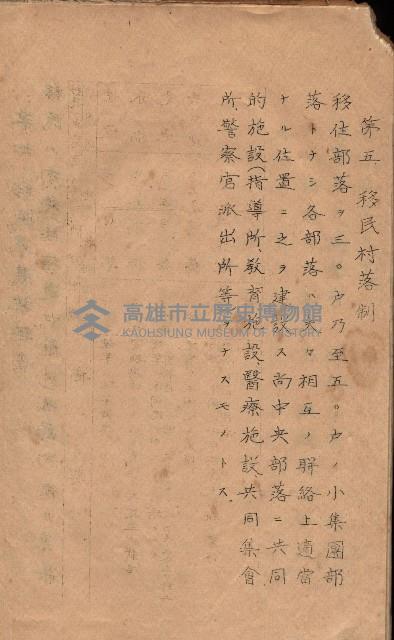 第五、移民村落制
移住部落ヲ三〇戸乃至五〇戸ノ小集團部
落トナシ各部落ハ
相互ノ聯絡上適當
ナル位置ニ之ヲ建設ス尚中央部落ニ共同
的施設(指導所、教育施設、醫療施設、共同集會
所、警察官派出所等)ヲナスモノトス、
高雄市立歷史博物館
KAOHSIUNG MUSEUM OF HISTORY